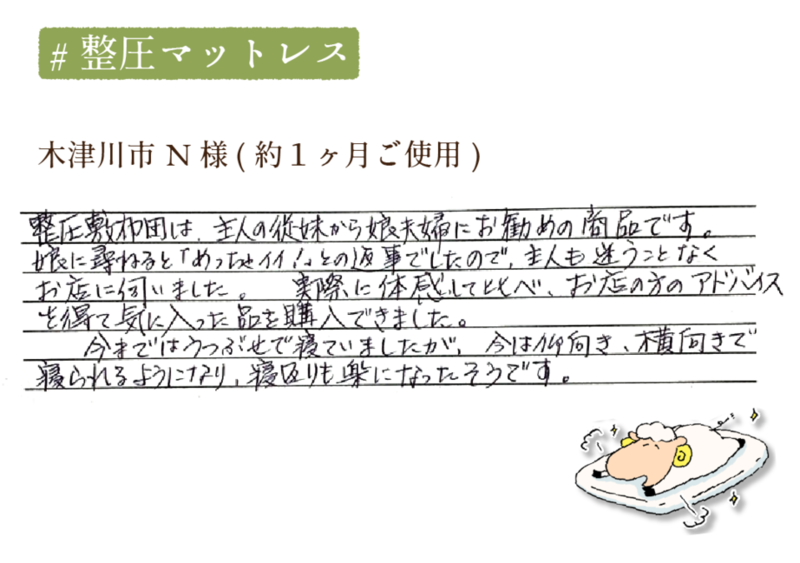 # 整圧マットレス
木津川市 N 様 ( 約 1 ヶ月ご使用 )
整圧敷布団は、主人の従妹から娘夫婦にお勧めの商品です。
娘に尋ねると「めっちゃイイ！」との返事でしたので、主人も迷うことなく
お店に伺いました。 実際に体感してとべ、お店の方のアドバイス
を得て気に入った品を購入できました。
今まではうつぶせで寝ていましたが、今は仰向き、横向きで
寝られるようになり、寝返りも楽になったそうです。